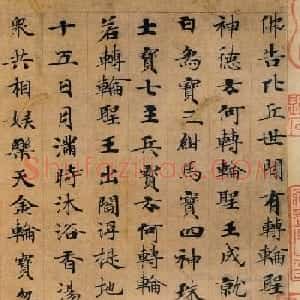 佛告比丘世間有轉輪聖
神德云何轉輪聖王成就
白象寶三紺馬寶四神珠
士寶七主兵寶云何轉輪
若轉輪聖王出閻浮提地
十五日月滿時沐浴香湯
眾共相娛樂天金輪寶忽